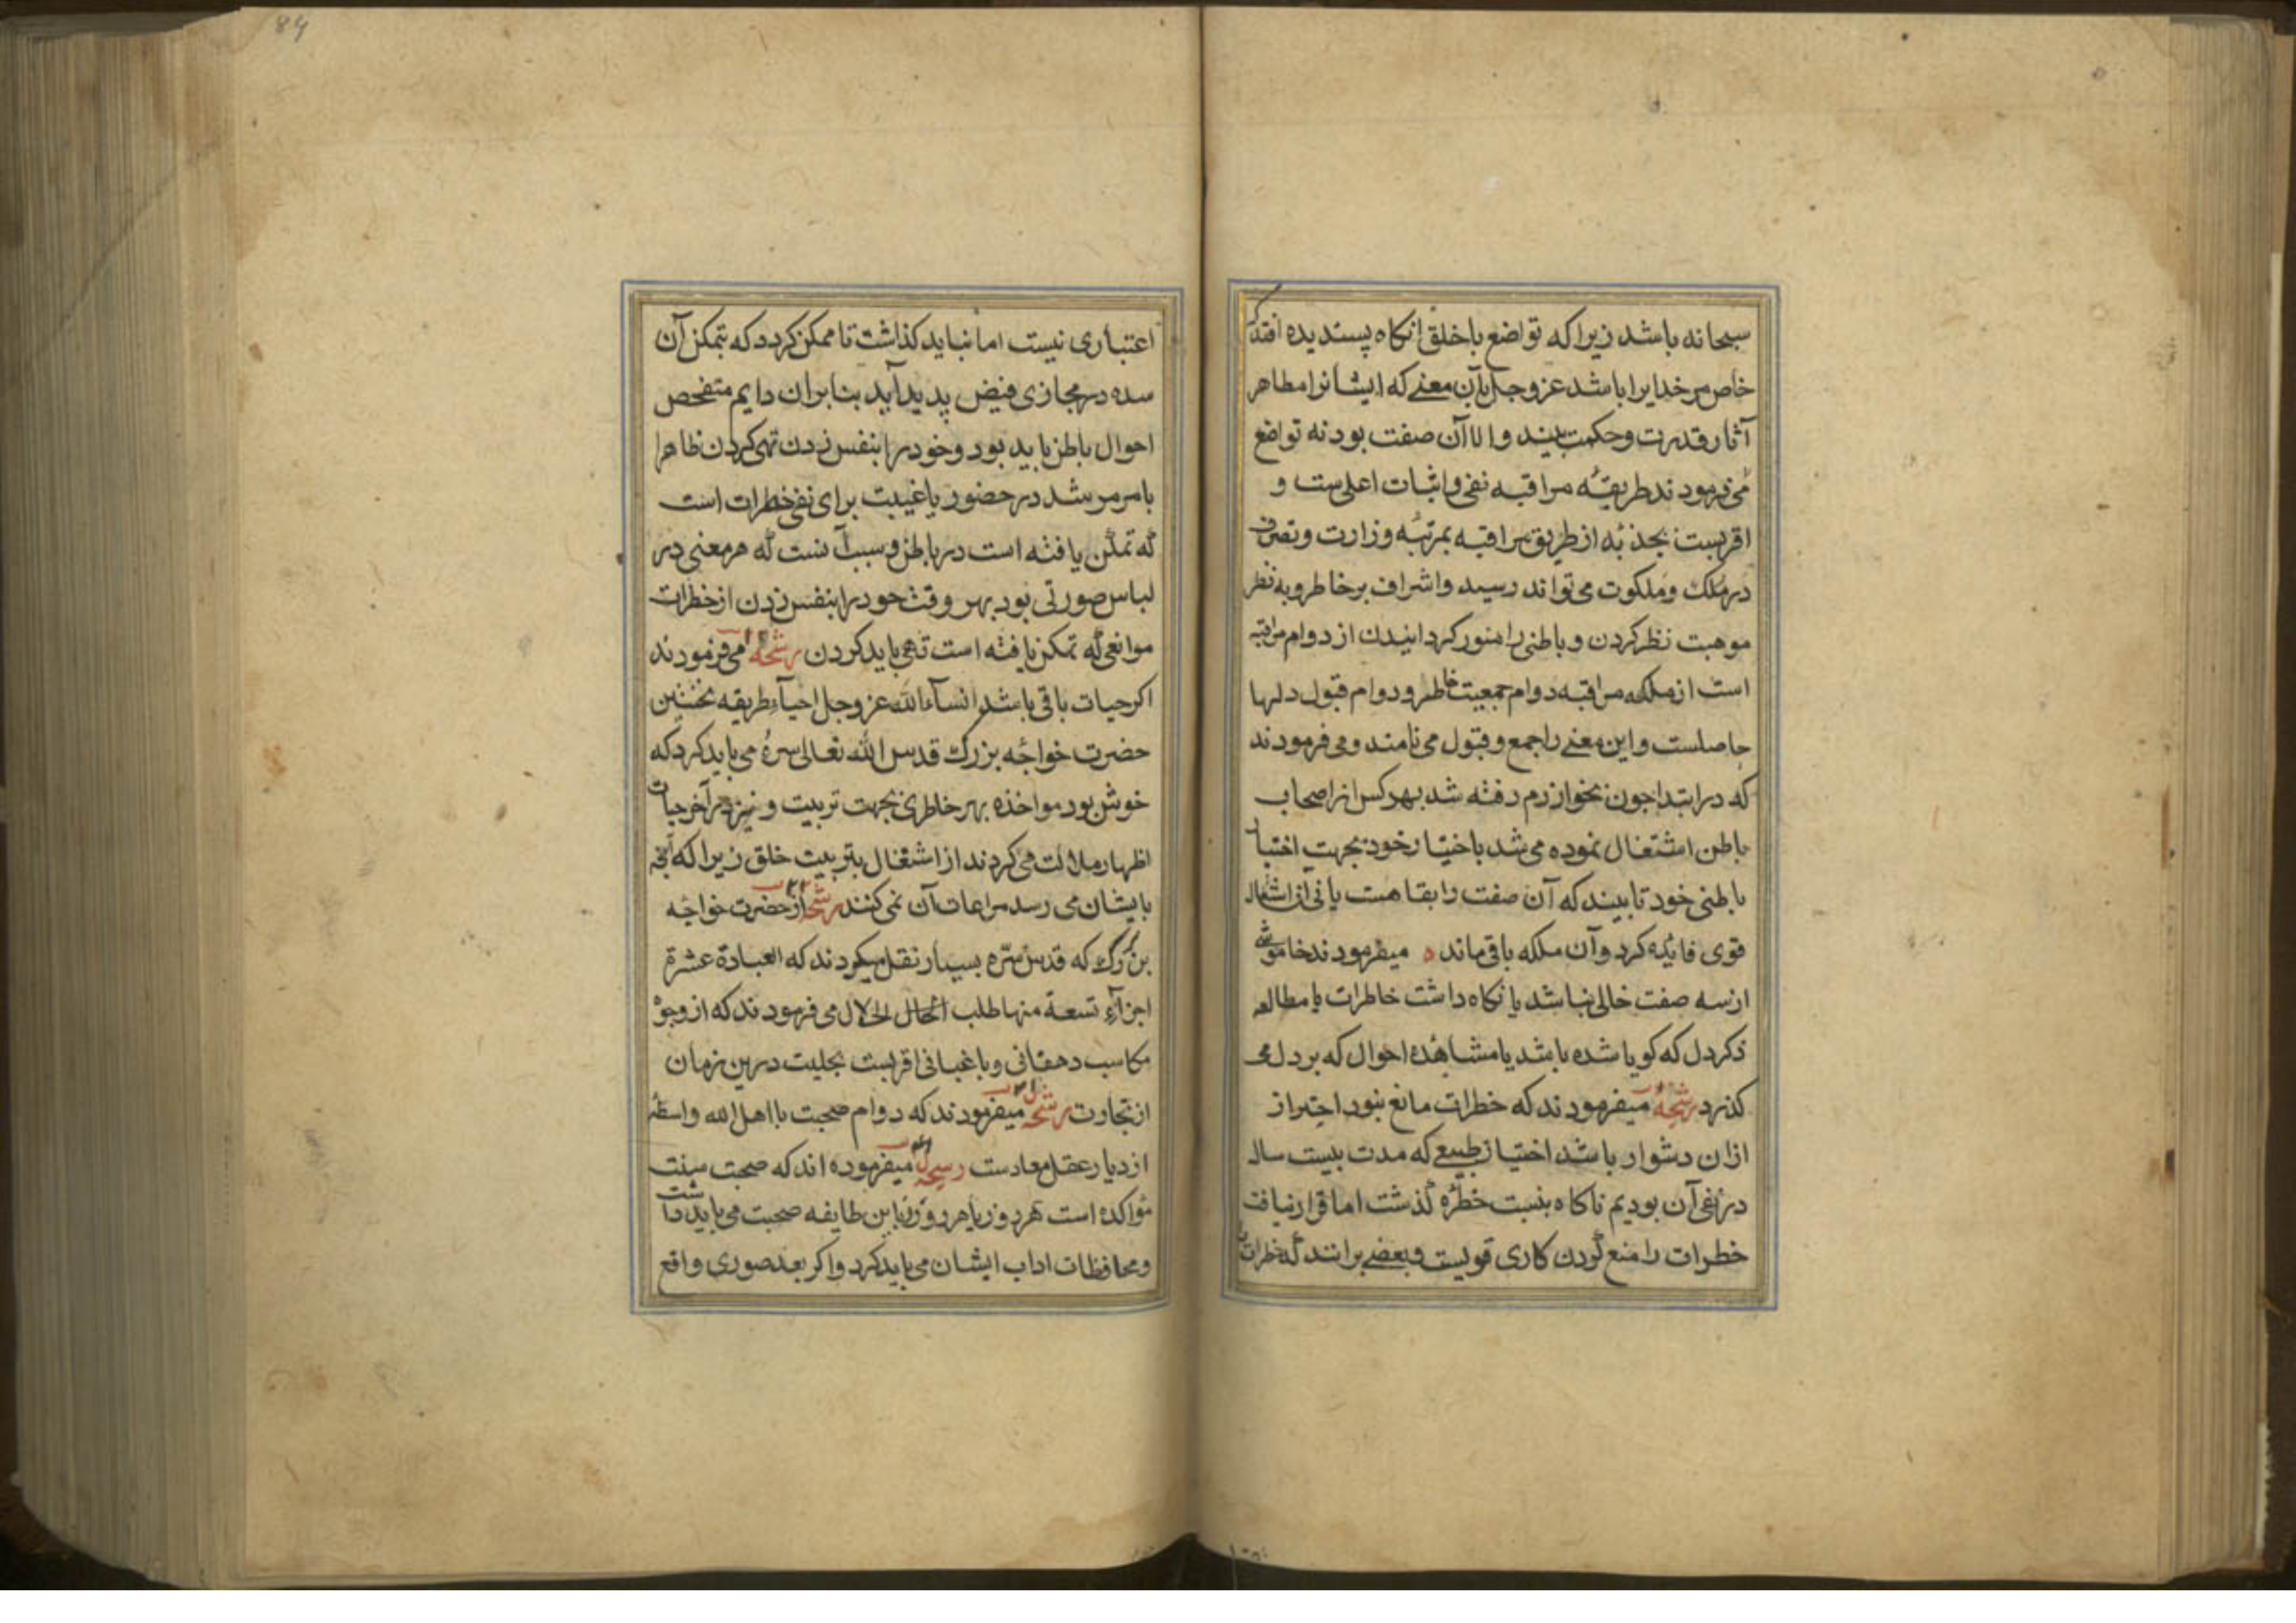 سبحانه باشد زیرا که تواضع با خلق انکاه پسندیده افتد که
خاص مر خدایرا باشد عز و جل بآن معنے که ایشانرا مظاهر
آثار قدرت و حکمت بیند و الا آن صفت بود نه تواضع
می فرمودند طریقهٔ مراقبه نفی و اثبات اعلی ست و
اقربست بجذبه از طریق مراقبه بمرتبهٔ وزارت و تصرف
در ملک و ملکوت می تواند رسید و اشراف بر خاطر و به نظر
موهبت نظر کردن و باطنی را منور کردانیدن از دوام مراقبه
است از ملکه مراقبه دوام جمعیت خاطر و دوام قبول دلها
حاصلست و این معنے را جمع و قبول می نامند و می فرمودند
که در ابتدا چون بخوارزم رفته شد بهر کس از اصحاب
باطن اشتغال نموده می شد باختیار خود بجهت اختبار
باطنی خود تا بیند که آن صفت را بقا هست یا نی آن اشتغال
قوی فایده کرد و آن ملکه باقی ماند ه میفرمودند خاموشی
از سه صفت خالی نباشد یا نکاه داشت خاطرات یا مطالعه
ذکر دل که کویا شده باشد یا مشاهده احوال که بر دل می
کذرد رشحهٔ میفرمودند که خطرات مانع نبود احتراز
ازان دشوار باشد اختیار طبیعے که مدت بیست سال
در نفی آن بودیم ناکاه بنسبت خطرهٔ کذشت اما قرار نیافت
خطرات را منع کردن کاری قویست و بعضے برانند که خطرات
اعتباری نیست اما نباید کذاشت تا ممکن کردد که بتمکن آن
سده در مجازی فیض پدید آید بنابران دایم متفحص
احوال باطن باید بود و خود را بنفس زدن تهی کردن ظاهرا
بامر مرشد در حضور یا غیبت برای نفی خطرات است
که تمکن یافته است در باطن و سبب آنست که هر معنی در
لباس صورتی بود بهر وقت خود را بنفس زدن از خطرات
موانعی که تمکن یافته است تهی باید کردن رشحهٔ می فرمودند
اکر حیات باقی باشد انشآءالله عز و جل احیآء طریقه نخستین
حضرت خواجه بزرک قدس الله تعالی سره می باید کرد که
خوش بود مواخذه بهر خاطری بجهت تربیت و نیز در آخر حیات
اظهار ملالت می کردند از اشتغال بتربیت خلق زیرا که آنچه
بایشان می رسد مراعات آن نمی کنند رشحه از حضرت خواجه
بزرک که قدس سره بسیار نقل میکردند که العبادة عشرة
اجزآء تسعة منها طلب الحلال می فرمودند که از وجوه
مکاسب دهقانی و باغبانی اقربست بحلیت درین زمان
از تجاوت رشحه میفرمودند که دوام صحبت با اهل الله واسطه
ازدیاد عقل معادست رشحه میفرموده اند که صحبت سنت
مؤاکده است هر روز یا هر دو روز با این طایفه صحبت می باید داشت
و محافظات اداب ایشان می باید کرد و اکر بعد صوری واقع